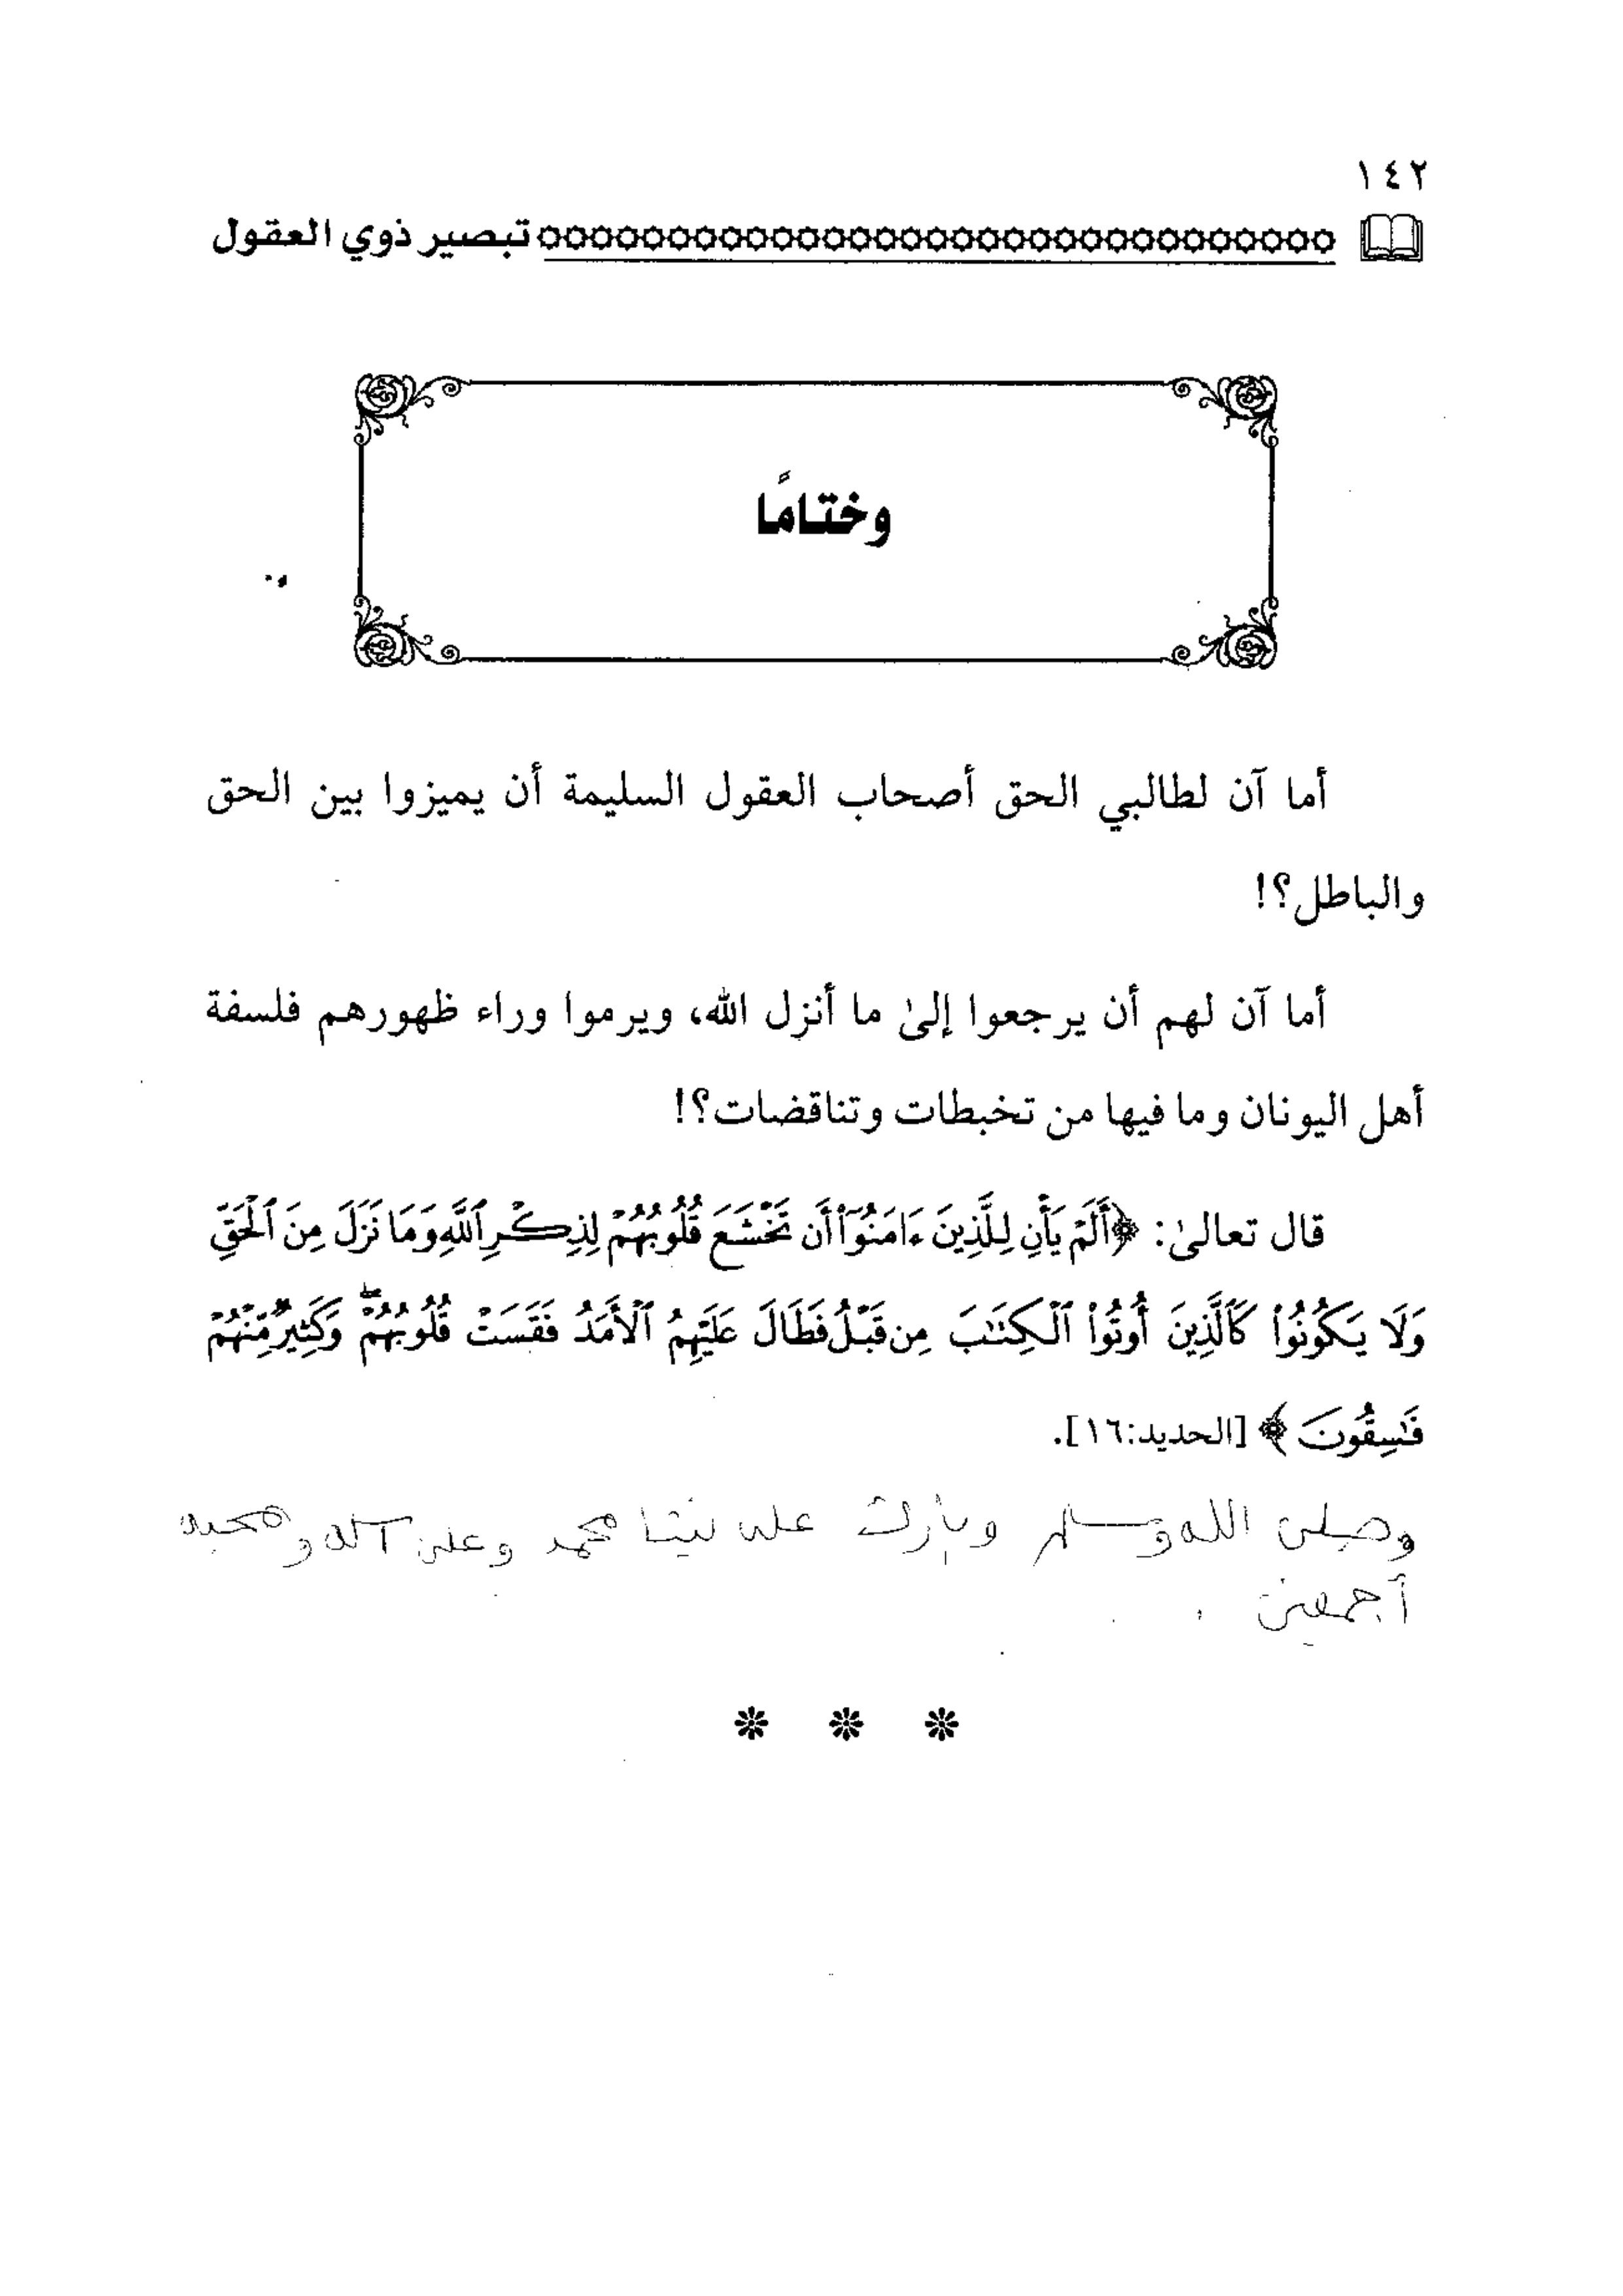 ١٤٢
تبصير ذوي العقول
وختامًا
أما آن لطالبي الحق أصحاب العقول السليمة أن يميزوا بين الحق
والباطل؟!
أما آن لهم أن يرجعوا إلىٰ ما أنزل الله، ويرموا وراء ظهورهم فلسفة
أهل اليونان وما فيها من تخبطات وتناقضات؟!
قال تعالىٰ: ﴿أَلَمْ يَأْنِ لِلَّذِينَ ءَامَنُوٓا۟ أَن تَخْشَعَ قُلُوبُهُمْ لِذِكْرِ ٱللَّهِ وَمَا نَزَلَ مِنَ ٱلْحَقِّ
وَلَا يَكُونُوا۟ كَٱلَّذِينَ أُوتُوا۟ ٱلْكِتَٰبَ مِن قَبْلُ فَطَالَ عَلَيْهِمُ ٱلْأَمَدُ فَقَسَتْ قُلُوبُهُمْ ۖ وَكَثِيرٌ مِّنْهُمْ
فَٰسِقُونَ﴾ [الحديد:١٦].
وصلى الله وسلم وبارك على نبينا محمد وعلى آله وصحبه
أجمعين .